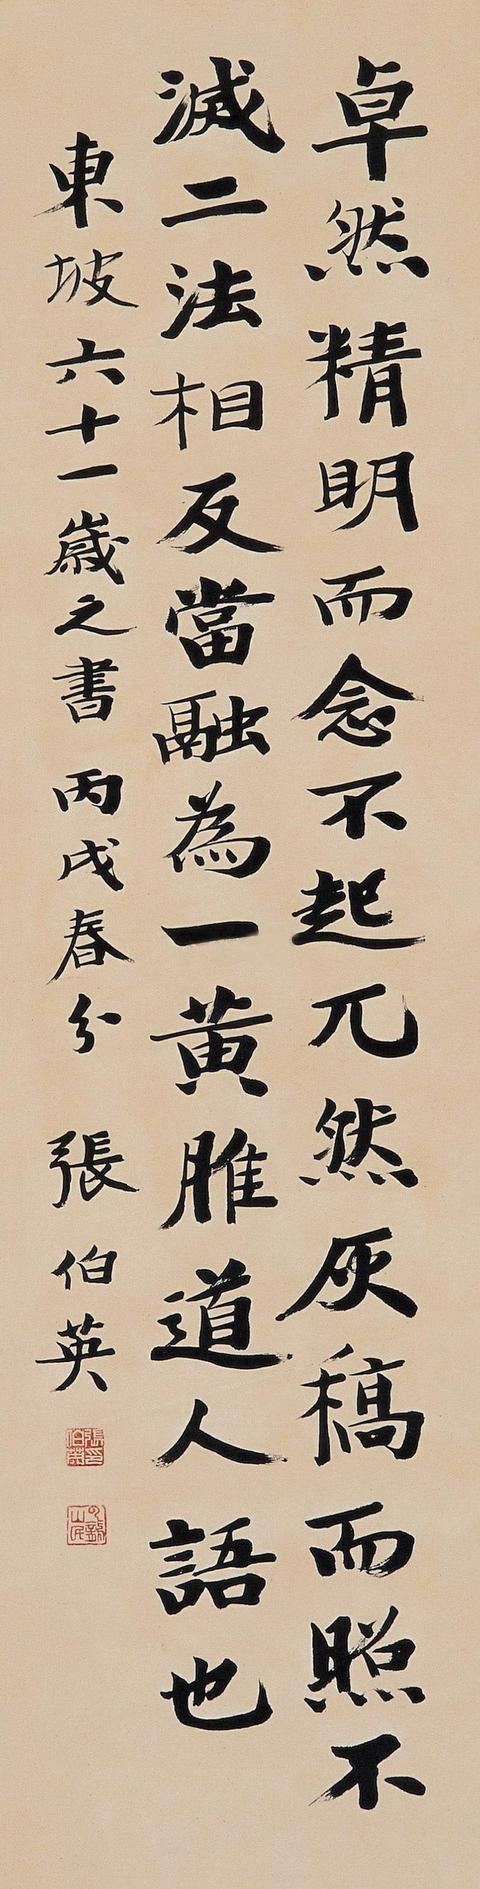 卓然精明而念不起兀然灰稿而照不
滅二法相反當融為一黄脽道人語也
東坡六十一歲之書 丙戌春分 張伯英
張伯英印